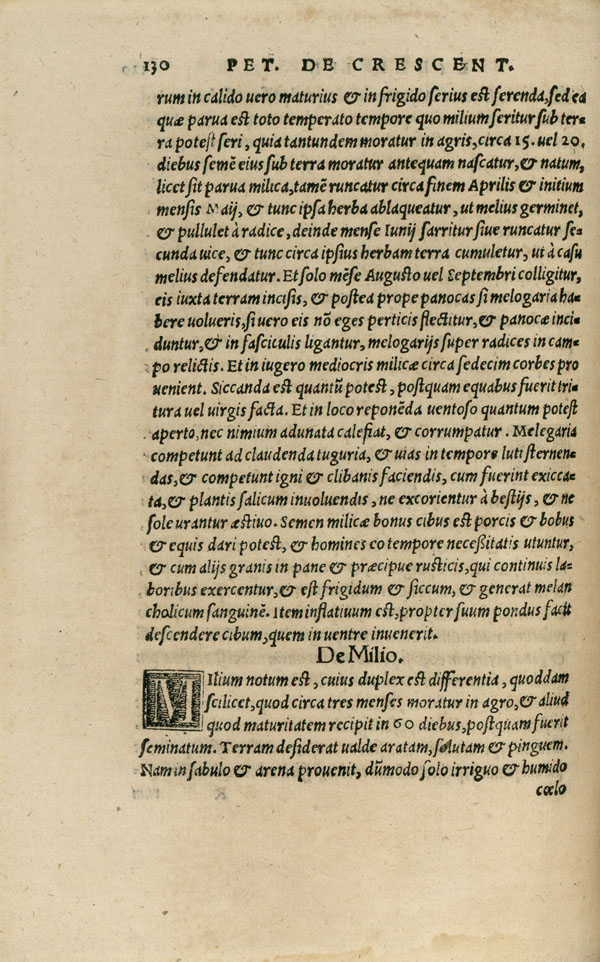 130 PET. DE CRESCENT.
rum in calido uero maturius & in frigido serius est serenda, sed ea
quæ parua est toto temperato tempore quo milium seritur sub ter-
ra potest seri, quia tantundem moratur in agris, circa 15. uel 20.
diebus semẽ eius sub terra moratur antequam nascatur, & natum,
licet sit parua milica, tamẽ runcatur circa finem Aprilis & initium
mensis Maij, & tunc ipsa herba ablaqueatur, ut melius germinet,
& pullulet à radice, deinde mense Iunij sarritur siue runcatur se-
cunda uice, & tunc circa ipsius herbam terra cumuletur, ut à casu
melius defendatur. Et solo mẽse Augusto uel Septembri colligitur,
eis iuxta terram incisis, & postea prope panocas si melogaria ha-
bere uolueris, si uero eis nõ eges perticis flectitur, & panocæ inci-
duntur, & in fasciculis ligantur, melogarijs super radices in cam-
po relictis. Et in iugero mediocris milicæ circa sedecim corbes pro
uenient. Siccanda est quantũ potest, postquam equabus fuerit tri-
tura uel uirgis facta. Et in loco reponẽda uentoso quantum potest
aperto, nec nimium adunata calefiat, & corrumpatur. Melegaria
competunt ad claudenda tuguria, & uias in tempore luti sternen-
das, & competunt igni & clibanis faciendis, cum fuerint exicca-
ta, & plantis salicum inuoluendis, ne excorientur à bestijs, & ne
sole urantur æstiuo. Semen milicæ bonus cibus est porcis & bobus
& equis dari potest, & homines eo tempore necessitatis utuntur,
& cum alijs granis in pane & præcipue rusticis, qui continuis la-
boribus exercentur, & est frigidum & siccum, & generat melan
cholicum sanguinẽ. Item inflatiuum est, propter suum pondus facit
descendere cibum, quem in uentre inuenerit.
De Milio.
MIlium notum est, cuius duplex est differentia, quoddam
scilicet, quod circa tres menses moratur in agro, & aliud
quod maturitatem recipit in 60 diebus, postquam fuerit
seminatum. Terram desiderat ualde aratam, solutam & pinguem.
Nam in sabulo & arena prouenit, dũmodo solo irriguo & humido
cœlo